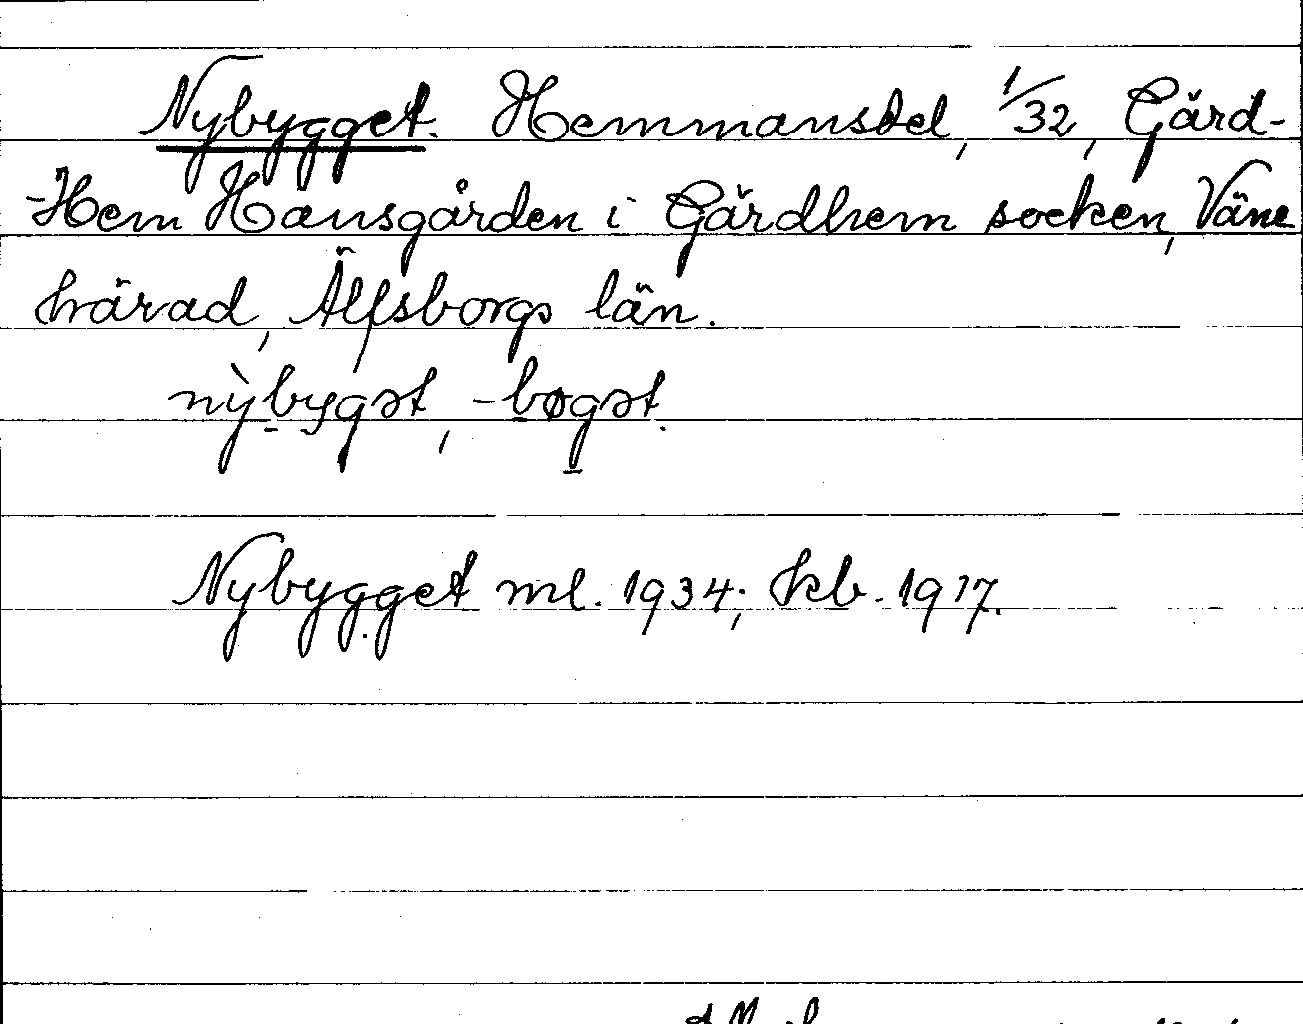 Nybygget. Hemmansdel, 1/32, Gärd-
-Hem Hansgården i Gärdhem socken, Väne
härad, Älfsborgs län.
nỳbygət, -bøgət.
Nybygget ml. 1934; kb. 1917.